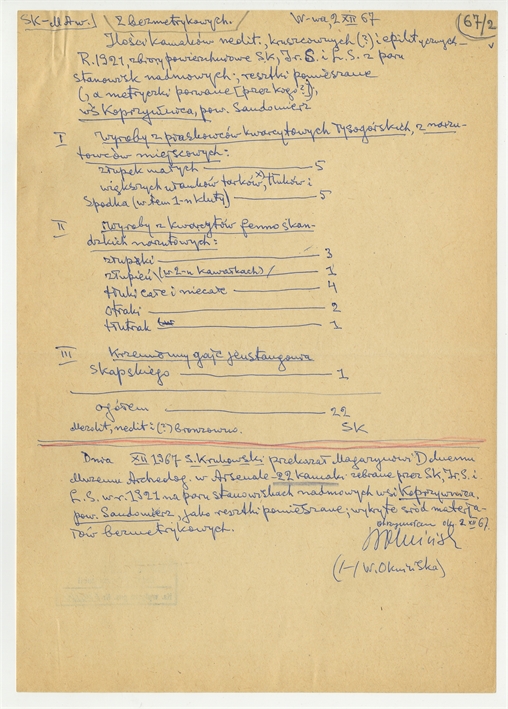 SK-dł Aw.] Z bezmetrykowych. W-wa, 2 XII 67 67/2
Ilości kamaków neolit., kruszcowych (?) i epilitycznych –
R. 1921. zbiory powierzchniowe SK, Ir. S. i L. S. z paru
stanowisk nadmowych; resztki pomieszane
(, a metryczki porwane [przez kogo?]),
wś Koprzywnica, pow. Sandomierz
I Wyroby z piaskowców kwarcytowych łysogórskich, z narzu-
towców miejscowych:
złupek małych — 5
większych ułamków tarków x), tłuków i
spodka (w tem 1-n kluty) — 5
II Wyroby z kwarcytów fennoskan-
dzkich narzutowych:
złupski — 3
złupień (w 2-u kawałkach) / — 1
tłuki całe i niecałe — 4
otraki — 2
tłutrak — 1
III Krzemionny gajć jeustangowia
skapskiego — 1
ogółem — 22
Mezolit, neolit i (?) bronzowno. SK
Dnia XII 1967 S. Krukowski przekazał Magazynowi Dziennemu
Muzeum Archeolog. w Arsenale 22 kamaki zebrane przez SK, Ir. S. i
L. S. w r. 1921 na paru stanowiskach nadmowych wsi Koprzywnica,
pow. Sandomierz, jako resztki pomieszane; wykryte śród materja-
łów bezmetrykowych.
otrzymałam dn. 2 XII 67.
(-/ W. Okmińska)